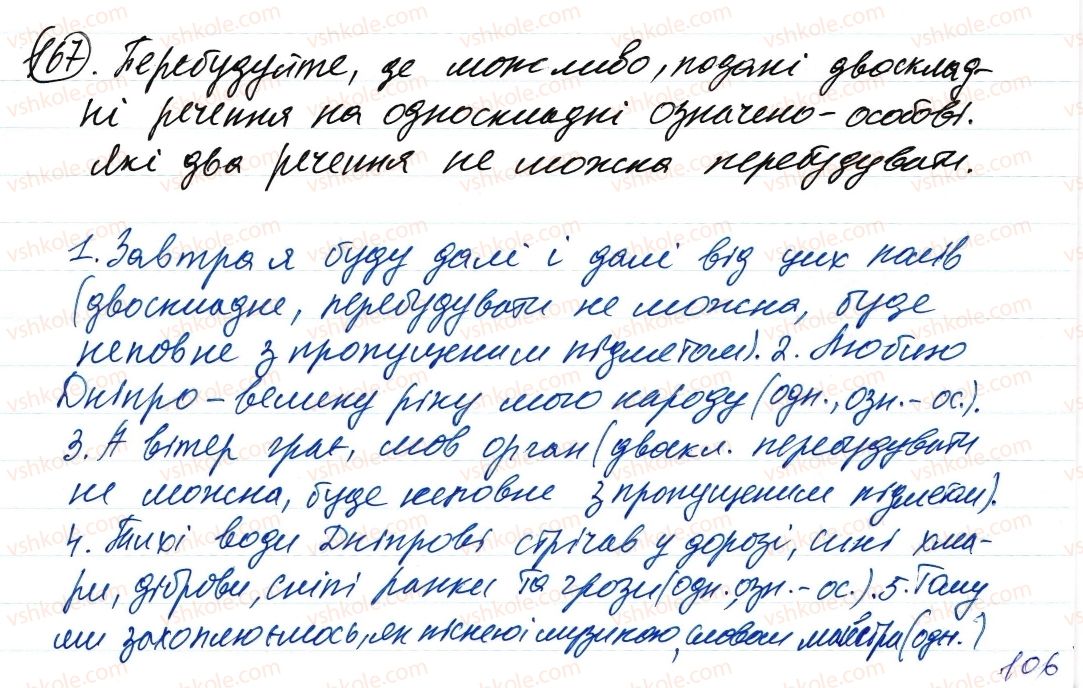 167. Перебудуйте, де можливо, подані двосклад-
ні речення на односкладні означено-особові.
Які два речення не можна перебудувати.
1. Завтра я буду далі і далі від цих
(двоскладне, перебудувати не можна, буде
неповне з пропущеним підметом). 2. Люблю
Дніпро – велику ріку мого народу (одн., озн.-ос.).
3. А вітер грає, мов орган (двоскл. перебудувати
не можна, буде неповне з пропущеним підметом).
4. Тихі води Дніпрові стрічав у дорозі, сині хма-
ри, діброви, сліпі ранки та грози (одн., озн.-ос.). 5. Тому
ми захоплюємось, як піснею і музикою, словом майстра (одн.)
106